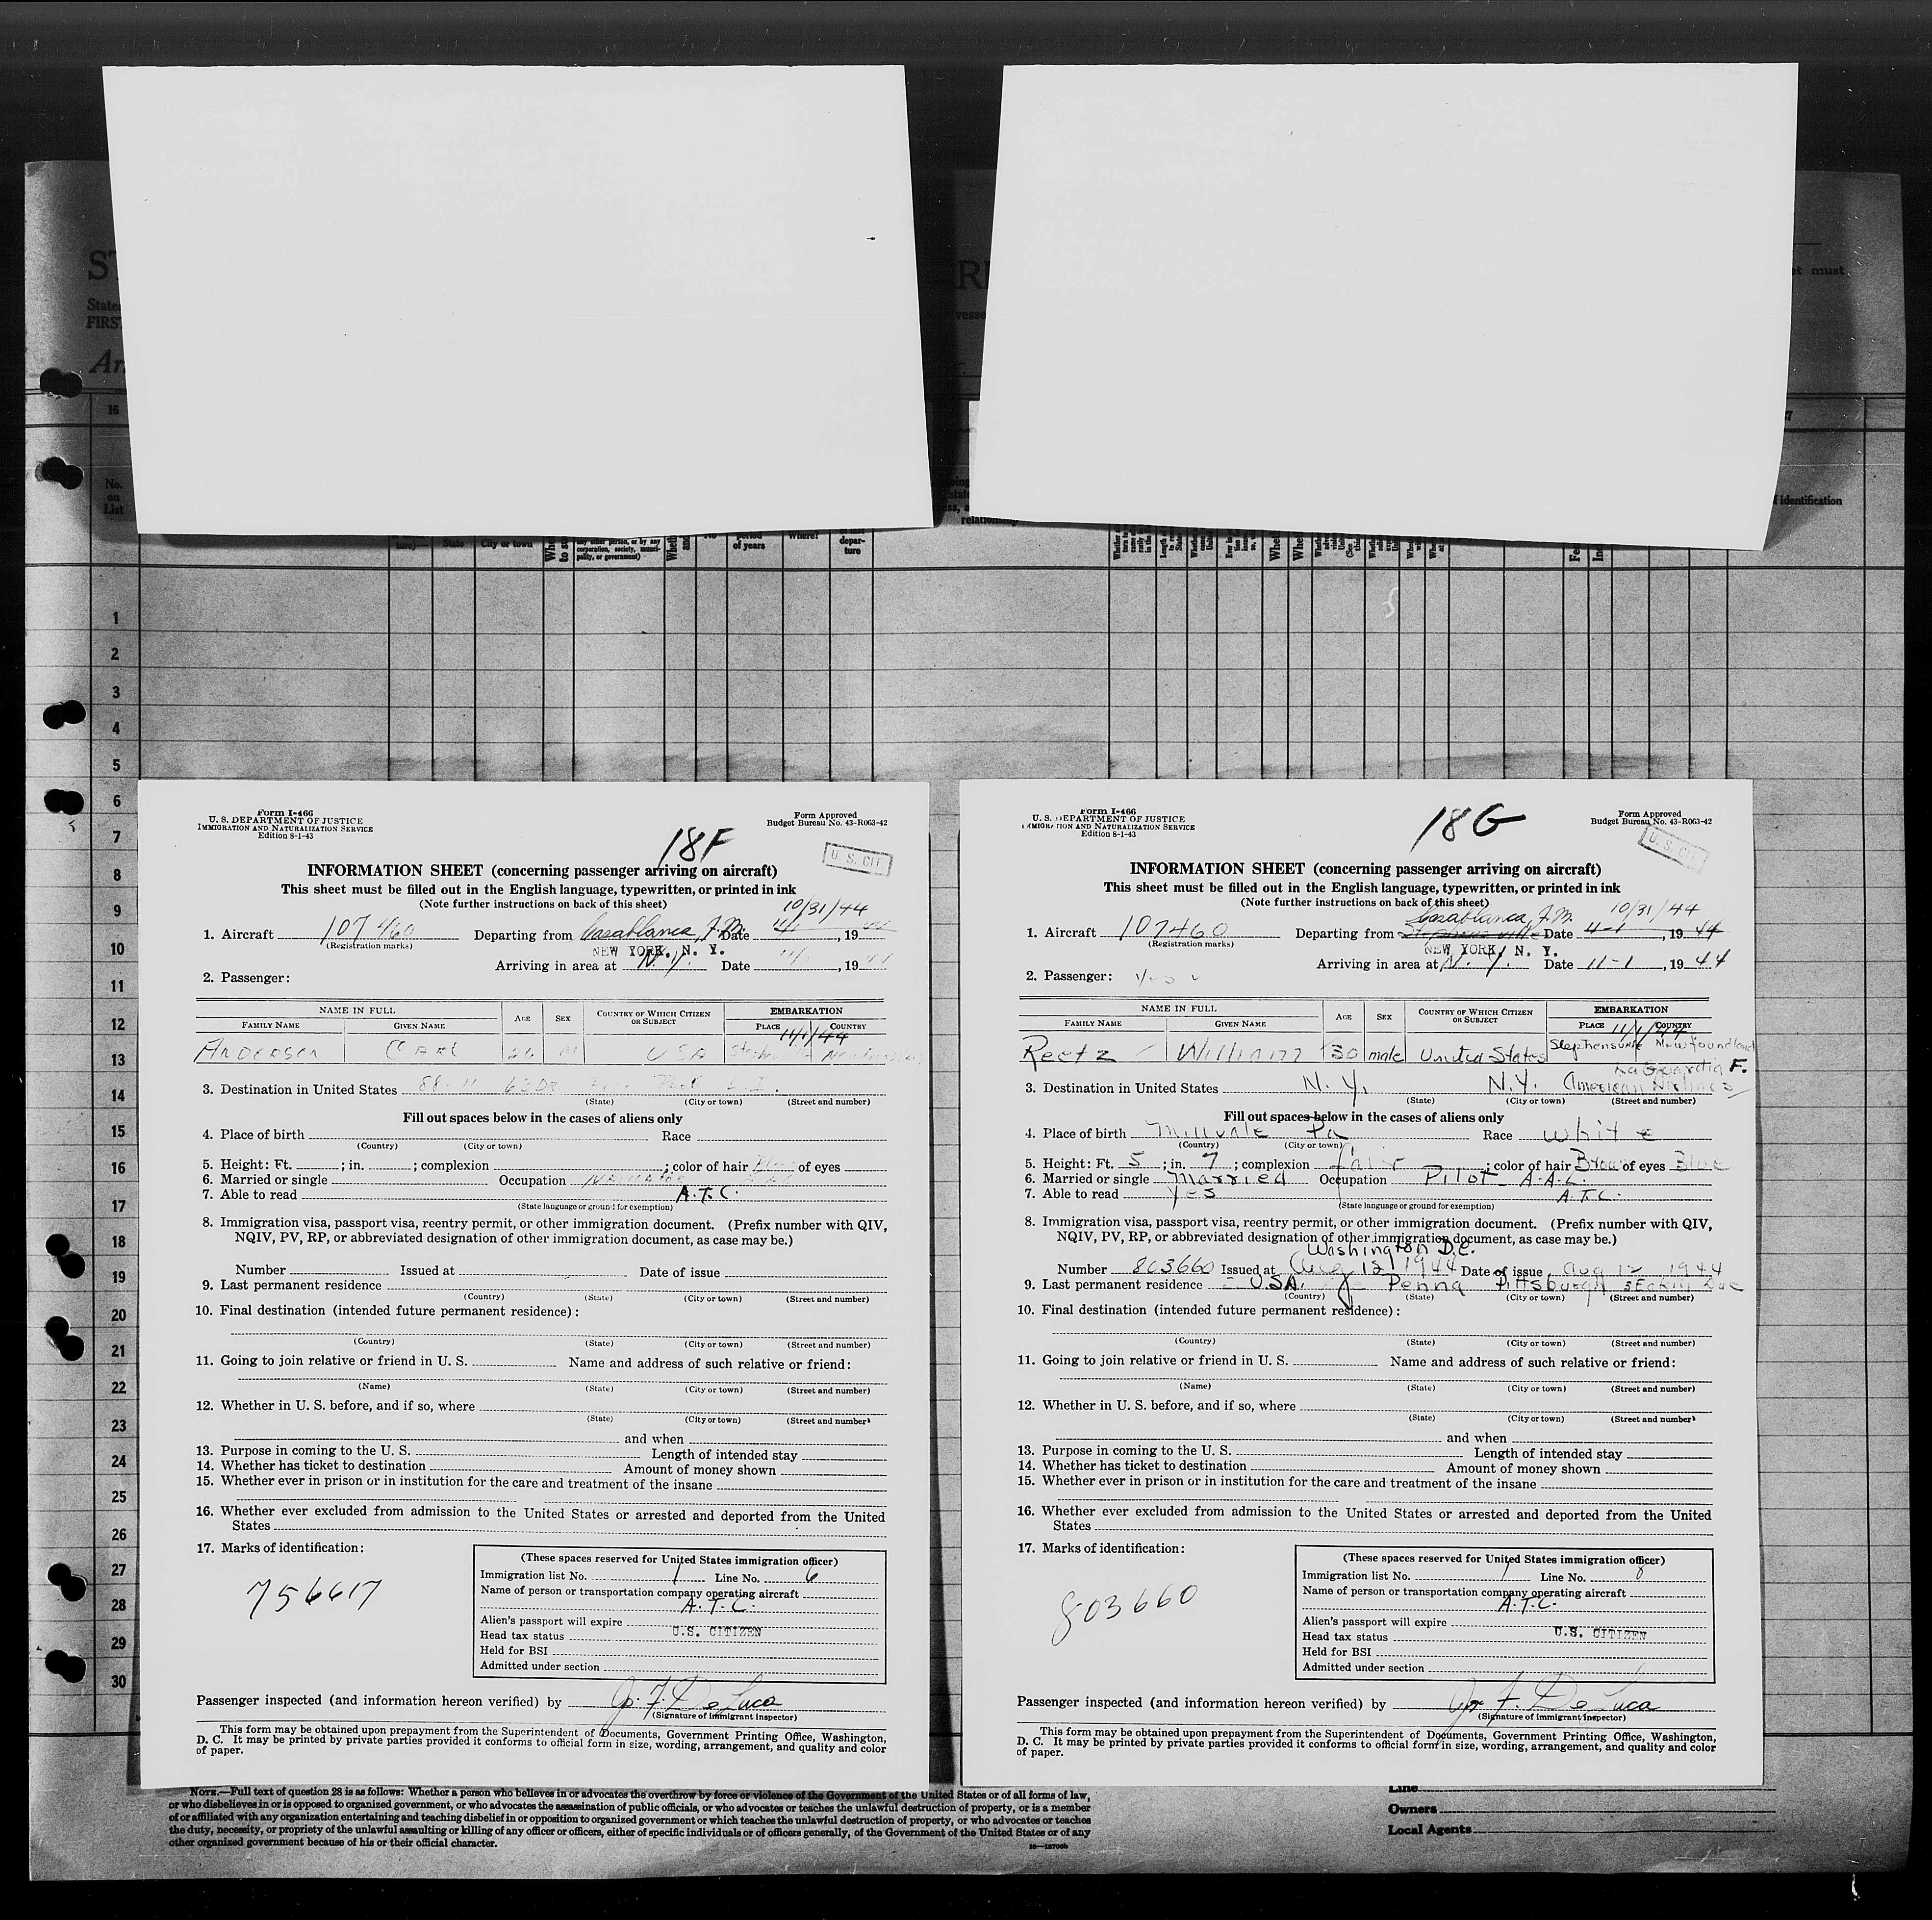 16
No.
on
List
State
City or town
period
of years
Where?
depar-
ture
any other person, or by any
corporation, society, munici-
pality, or government)
relationship
identification
must
1
2
3
4
5
6
7
8
9
10
11
12
13
14
15
16
17
18
19
20
21
22
23
24
25
26
27
28
29
30
Form I-466
U. S. DEPARTMENT OF JUSTICE
IMMIGRATION AND NATURALIZATION SERVICE
Edition 8-1-43
Form Approved
Budget Bureau No. 43-R063-42
18F
U. S. CIT
INFORMATION SHEET (concerning passenger arriving on aircraft)
This sheet must be filled out in the English language, typewritten, or printed in ink
(Note further instructions on back of this sheet)
10/31/44
1. Aircraft 107460 Departing from Casablanca, F.M. Date , 19
(Registration marks)
NEW YORK, N. Y.
Arriving in area at N.Y. Date 11/1 , 1944
2. Passenger:
NAME IN FULL AGE SEX COUNTRY OF WHICH CITIZEN OR SUBJECT EMBARKATION
FAMILY NAME GIVEN NAME PLACE COUNTRY
11/1/44
ANDERSON CARL 26 M USA
3. Destination in United States 88-11 63DR
(State) (City or town) (Street and number)
Fill out spaces below in the cases of aliens only
4. Place of birth Race
(Country) (City or town)
5. Height: Ft. ; in. ; complexion ; color of hair of eyes
6. Married or single Occupation NAVIGATOR
7. Able to read A.T.C.
(State language or ground for exemption)
8. Immigration visa, passport visa, reentry permit, or other immigration document. (Prefix number with QIV,
NQIV, PV, RP, or abbreviated designation of other immigration document, as case may be.)
Number Issued at Date of issue
9. Last permanent residence
(Country) (State) (City or town) (Street and number)
10. Final destination (intended future permanent residence):
(Country) (State) (City or town) (Street and number)
11. Going to join relative or friend in U. S. Name and address of such relative or friend:
(Name) (State) (City or town) (Street and number)
12. Whether in U. S. before, and if so, where
(State) (City or town) (Street and number)
and when
13. Purpose in coming to the U. S. Length of intended stay
14. Whether has ticket to destination Amount of money shown
15. Whether ever in prison or in institution for the care and treatment of the insane
16. Whether ever excluded from admission to the United States or arrested and deported from the United
States
17. Marks of identification:
756617
(These spaces reserved for United States immigration officer)
Immigration list No. 1 Line No. 6
Name of person or transportation company operating aircraft
A.T.C.
Alien's passport will expire
Head tax status U.S. CITIZEN
Held for BSI
Admitted under section
Passenger inspected (and information hereon verified) by Jos. F. De Luca
(Signature of Immigrant Inspector)
This form may be obtained upon prepayment from the Superintendent of Documents, Government Printing Office, Washington,
D. C. It may be printed by private parties provided it conforms to official form in size, wording, arrangement, and quality and color
of paper.
Form I-466
U. S. DEPARTMENT OF JUSTICE
IMMIGRATION AND NATURALIZATION SERVICE
Edition 8-1-43
Form Approved
Budget Bureau No. 43-R063-42
18G
U. S. CIT
INFORMATION SHEET (concerning passenger arriving on aircraft)
This sheet must be filled out in the English language, typewritten, or printed in ink
(Note further instructions on back of this sheet)
Casablanca, F.M. 10/31/44
1. Aircraft 107460 Departing from Stephensville Date 4-1 , 1944
(Registration marks)
NEW YORK, N. Y.
Arriving in area at N.Y. Date 11-1 , 1944
2. Passenger: Yes
NAME IN FULL AGE SEX COUNTRY OF WHICH CITIZEN OR SUBJECT EMBARKATION
FAMILY NAME GIVEN NAME PLACE COUNTRY
11/1/44
Reetz William 30 male United States Stephensville Newfoundland
LaGuardia F.
3. Destination in United States N.Y. N.Y. American Airlines
(State) (City or town) (Street and number)
Fill out spaces below in the cases of aliens only
4. Place of birth Millvale Pa Race white
(Country) (City or town)
5. Height: Ft. 5 ; in. 7 ; complexion fair ; color of hair Brown of eyes Blue
6. Married or single Married Occupation Pilot A.A.L.
7. Able to read yes A.T.C.
(State language or ground for exemption)
8. Immigration visa, passport visa, reentry permit, or other immigration document. (Prefix number with QIV,
NQIV, PV, RP, or abbreviated designation of other immigration document, as case may be.)
Washington D.C.
Number 803660 Issued at Aug 12 1944 Date of issue Aug 12 1944
9. Last permanent residence USA. Penna Pittsburgh
(Country) (State) (City or town) (Street and number)
10. Final destination (intended future permanent residence):
(Country) (State) (City or town) (Street and number)
11. Going to join relative or friend in U. S. Name and address of such relative or friend:
(Name) (State) (City or town) (Street and number)
12. Whether in U. S. before, and if so, where
(State) (City or town) (Street and number)
and when
13. Purpose in coming to the U. S. Length of intended stay
14. Whether has ticket to destination Amount of money shown
15. Whether ever in prison or in institution for the care and treatment of the insane
16. Whether ever excluded from admission to the United States or arrested and deported from the United
States
17. Marks of identification:
803660
(These spaces reserved for United States immigration officer)
Immigration list No. 1 Line No. 8
Name of person or transportation company operating aircraft
A.T.C.
Alien's passport will expire
Head tax status U.S. CITIZEN
Held for BSI
Admitted under section
Passenger inspected (and information hereon verified) by Jos. F. De Luca
(Signature of Immigrant Inspector)
This form may be obtained upon prepayment from the Superintendent of Documents, Government Printing Office, Washington,
D. C. It may be printed by private parties provided it conforms to official form in size, wording, arrangement, and quality and color
of paper.
NOTE.—Full text of question 28 is as follows: Whether a person who believes in or advocates the overthrow by force or violence of the Government of the United States or of all forms of law,
or who disbelieves in or is opposed to organized government, or who advocates the assassination of public officials, or who advocates or teaches the unlawful destruction of property, or is a member
of or affiliated with any organization entertaining and teaching disbelief in or opposition to organized government or which teaches the unlawful destruction of property, or who advocates or teaches
the duty, necessity, or propriety of the unlawful assaulting or killing of any officer or officers, either of specific individuals or of officers generally, of the Government of the United States or of any
other organized government because of his or their official character.
Line
Owners
Local Agents